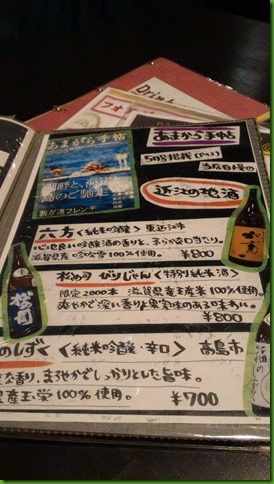 Drink
フォ
あまから手帖
あまから手帖
5月号掲載
当店自慢の
湖畔と、
島のご馳走
我が道フレンチ
近江の地酒
六方 〈純米吟醸〉 東近江市
滋賀県産吟吹雪100%使用。 ¥800
松の司 びりじゅん 〈特別純米酒〉
限定2000本 滋賀県産玉栄米100%使用。
爽やかで深い香りと果実味のある味わい。
¥800
のしずく 〈純米吟醸・辛口〉 高島市
な香り、まろやかでしっかりとした旨味。
県産玉栄 100%使用。 ¥700
松の司